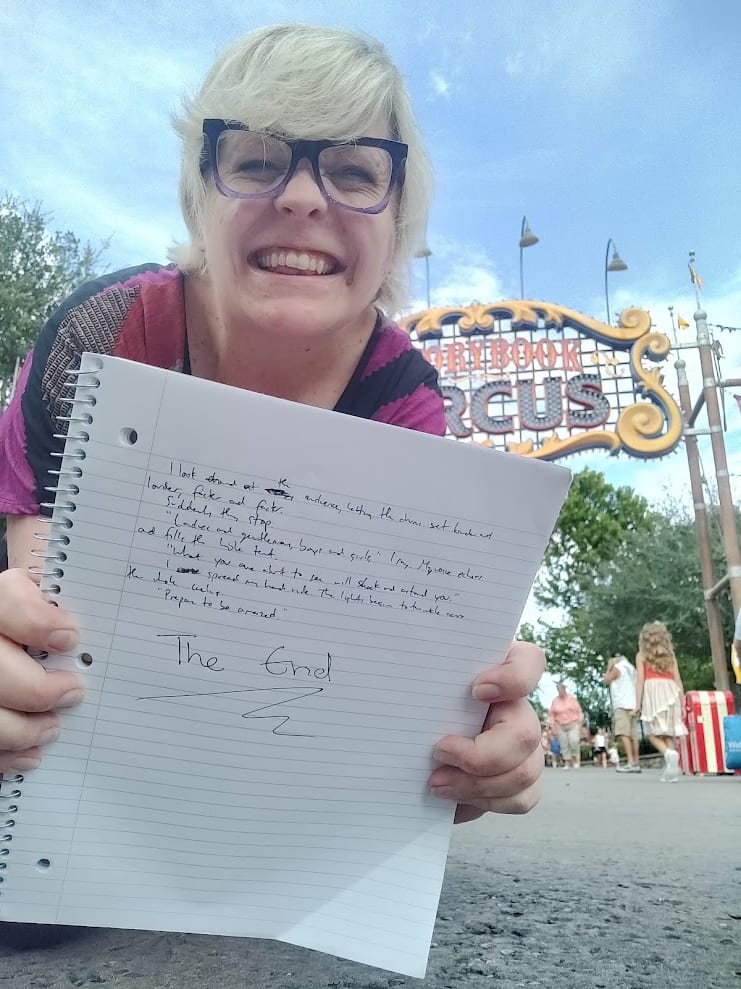 STORYBOOK
CIRCUS
I look at the audience, letting the drums set
louder, faster and faster.
Suddenly, they stop.
"Ladies and gentlemen, boys and girls," I say. My voice echoes
and fills the whole tent.
"What you are about to see will shock and astound you."
I spread my hands wide. The lights begin to twinkle
the
"Prepare to be amazed."
The End